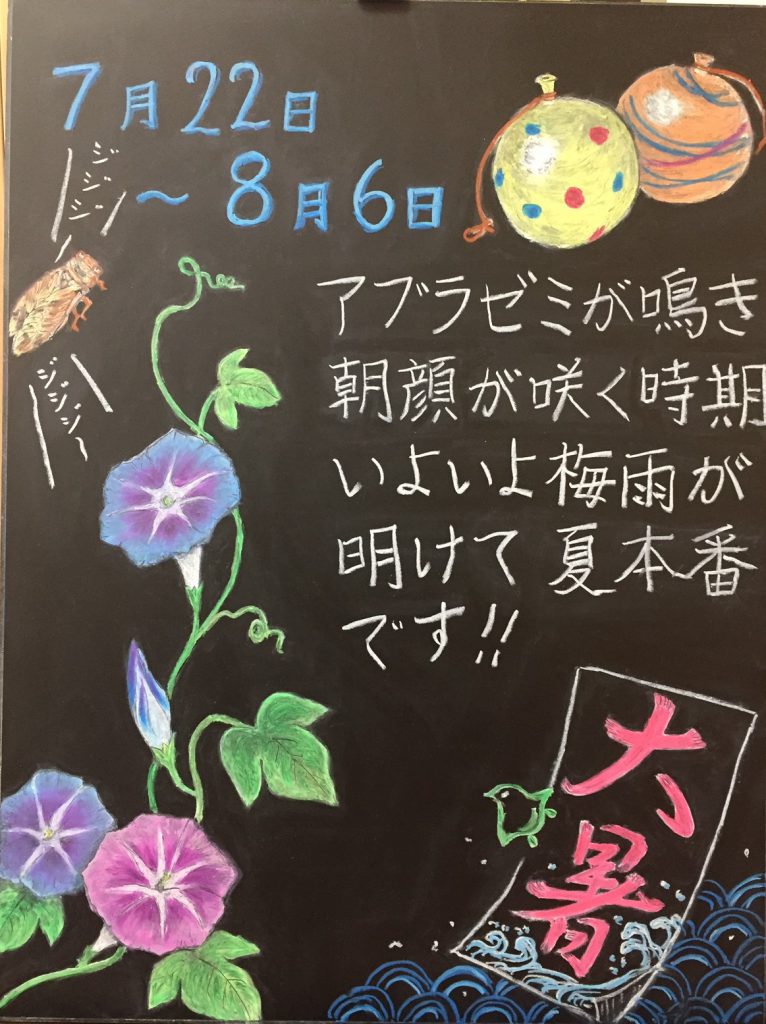 7月22日
～8月6日
ジジジジ
ジジジジー
アブラゼミが鳴き
朝顔が咲く時期
いよいよ梅雨が
明けて夏本番
です!!
大暑